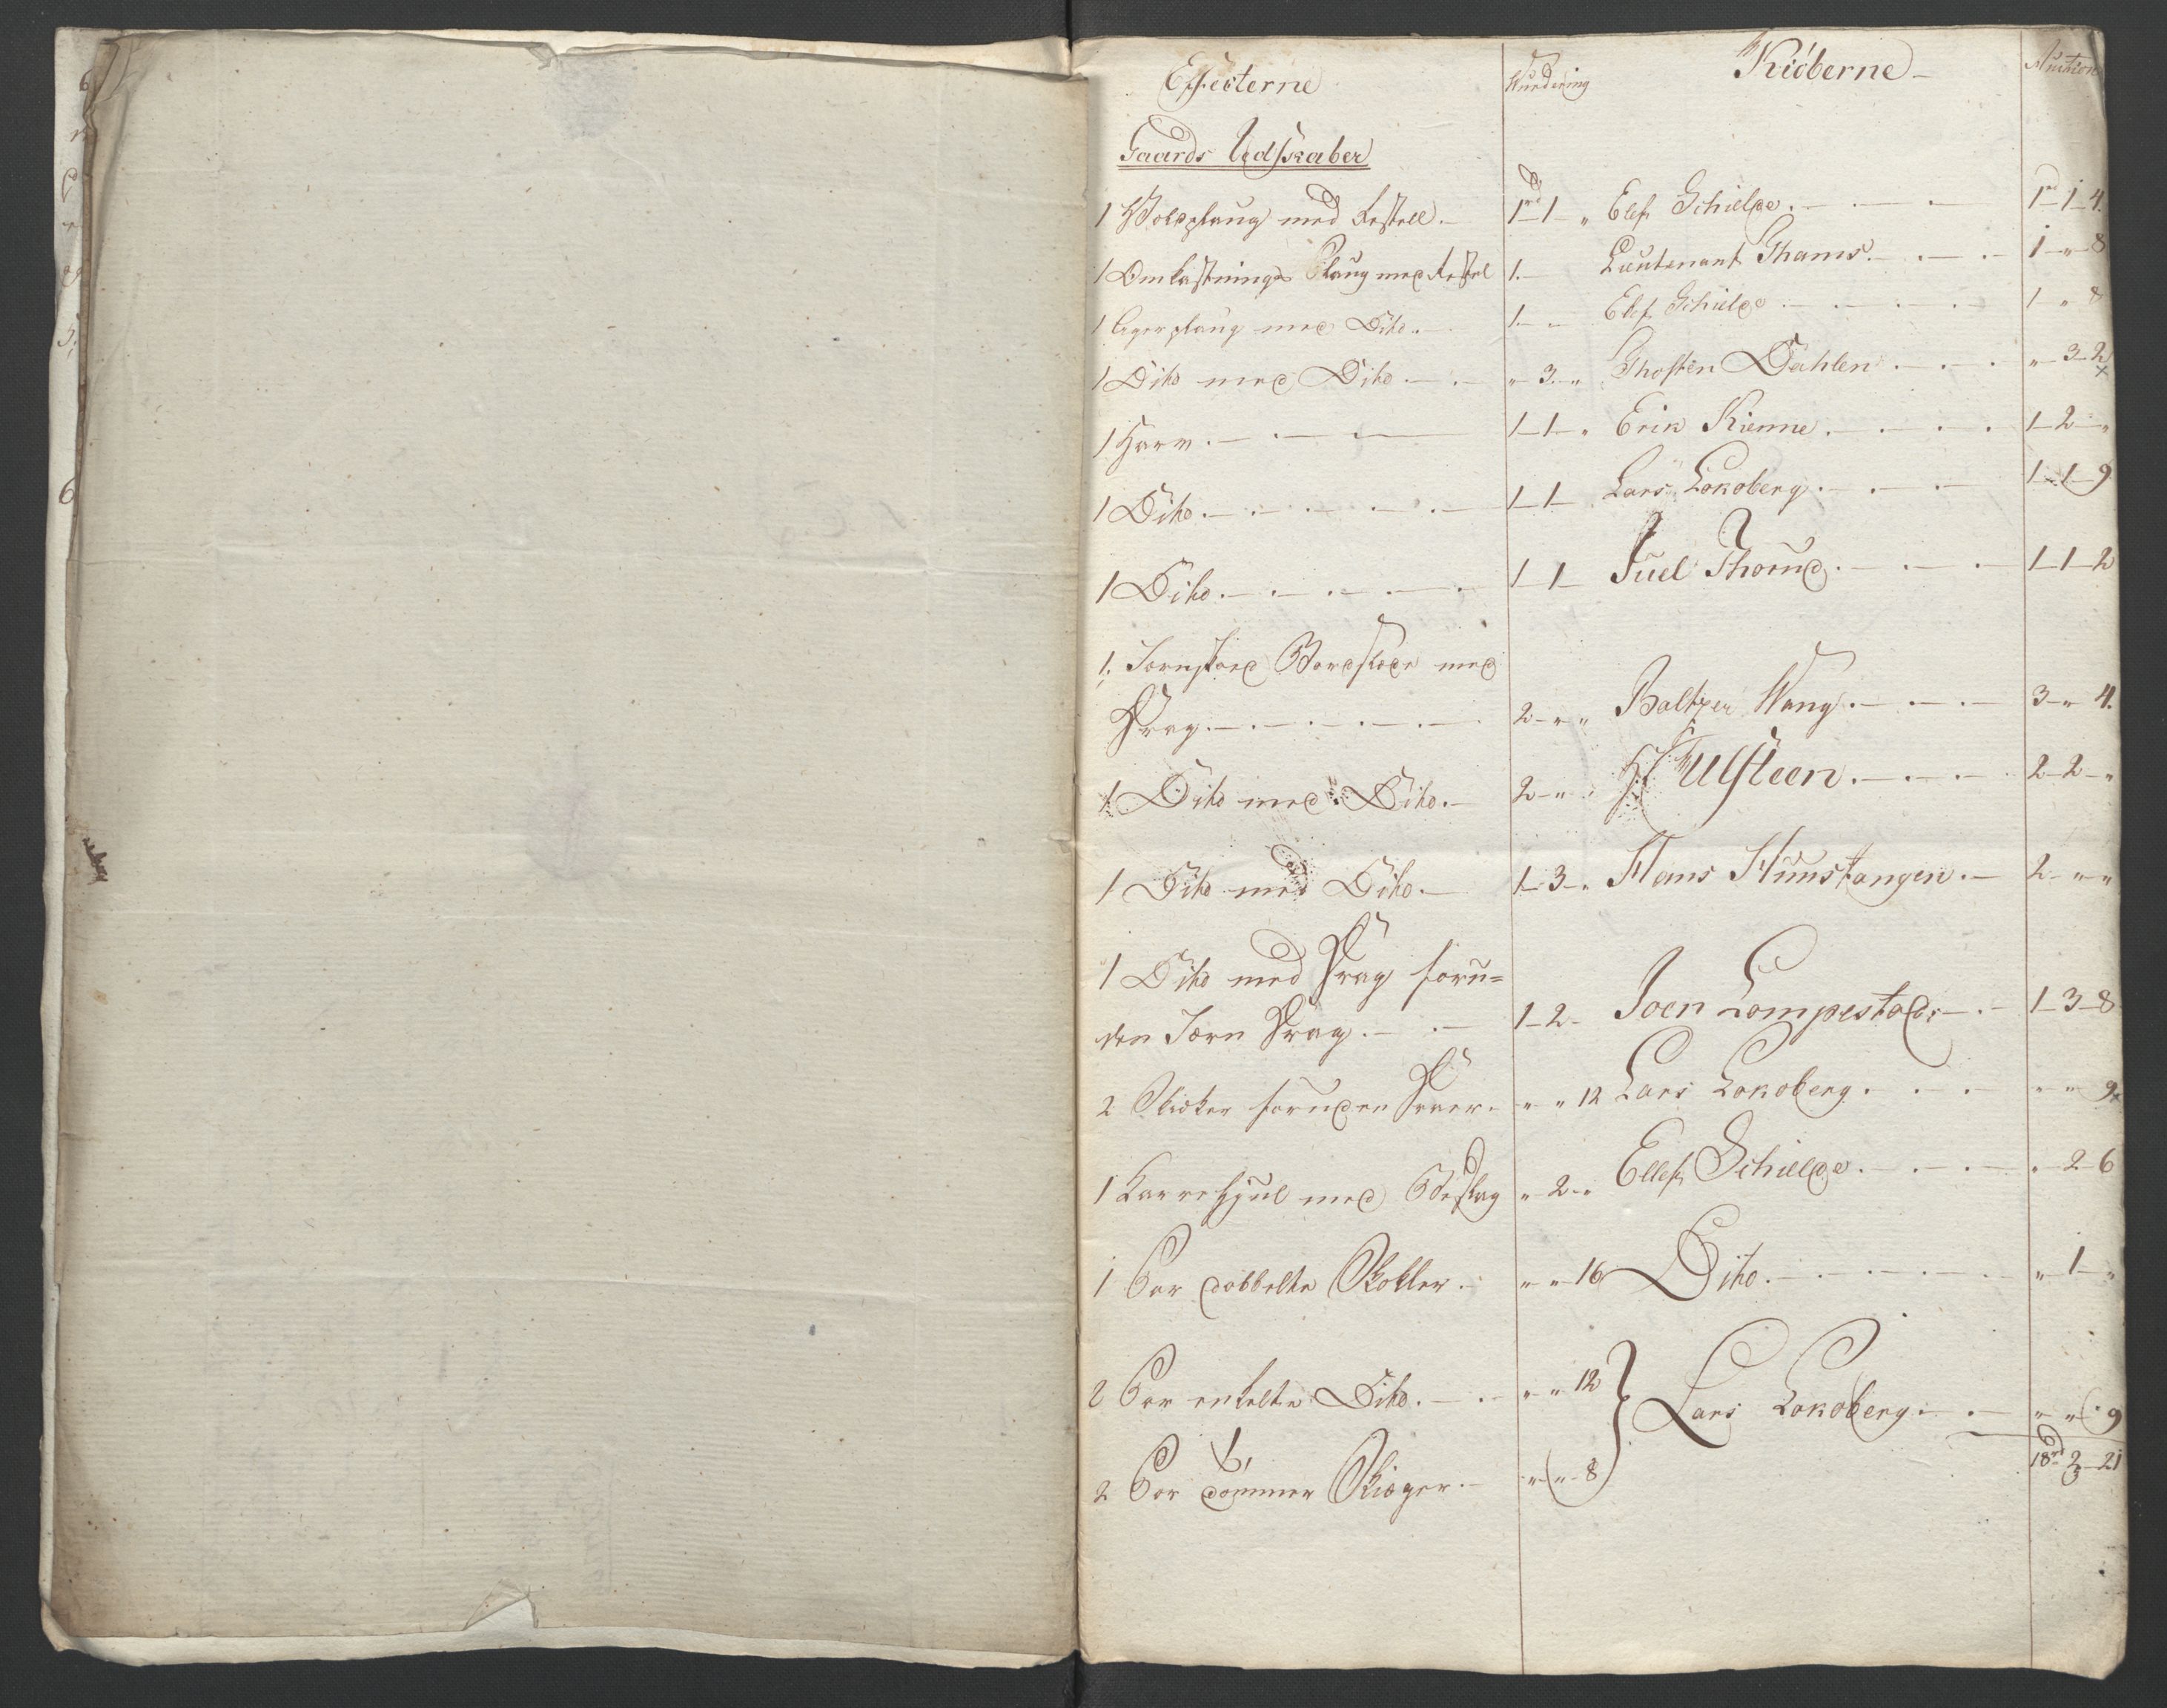 Effecterne Wurdering Kiöberne Auction
Gaards Redskaber
1 Voldplaug med Kestell 1rd 1 " Elef Schielde 1rd 1 4
1 Omkastnings Plaug med Kestel 1 Lieutenant Thams 1 " 8
1 Agerplaug med Dito 1 Elef Schielde 1 " 8
1 Dito med Dito " 3 " Thosten Dahlen " 3 2
1 Harv 1 1 " Erik Kienne 1 2 "
1 Dito 1 1 Lars Lokoberg 1 1 9
1 Dito 1 1 Juel Thorud 1 1 2
1 Jernskoed med
Drag 2 " " Baltzer Wang 3 " 4
1 Dito med Dito 2 " Ulsteen 2 2 "
1 Dito med Dito 1 3 " Hans Hunstangen 2 " "
1 Dito med Drag foru=
den Jern Drag 1 2 Joen Lompestad 1 3 8
2 foruden " " 12 Lars Lokoberg " " 9
1 Karrehjul med Beslag " 2 " Ellef Schielde " 2 6
1 Par dobbelte Skokler " " 16 Dito " 1 "
2 Par enkelte Dito " " 12 } Lars Lokoberg " " 9
2 Par Tömmer " " 8
18rd 3 21